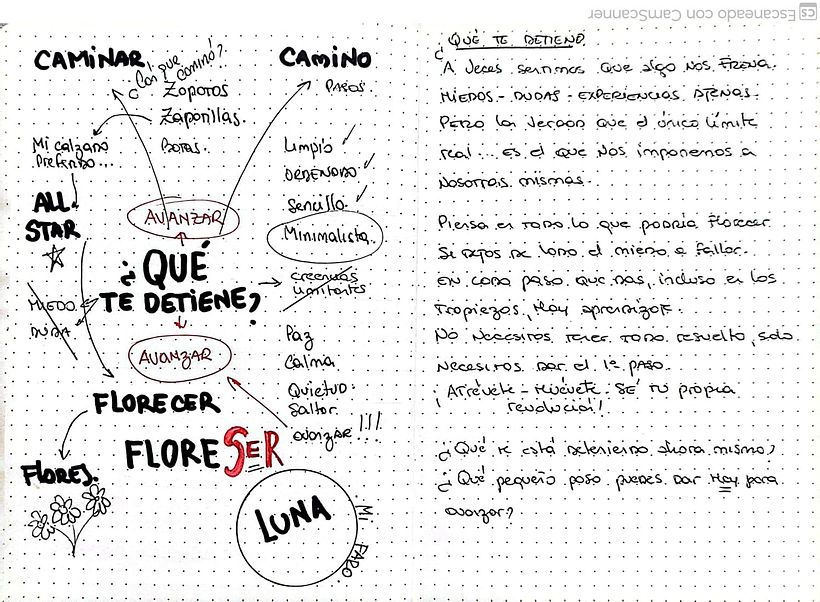 CS Escaneado con CamScanner
CAMINAR
¿Con que camino?
Zapatos
Zapatillas.
Botas.
Mi calzado
preferido...
ALL.
STAR
CAMINO
PASOS.
Limpio
ORDENADO
Sencillo
Minimalista.
creencias
limitantes
AVANZAR
¿QUÉ
TE DETIENE?
MIEDO
DUDA
AVANZAR
Paz
Calma
Quietud.
Saltar.
avanzar!!!
FLORECER
FLORESER
FLORES.
LUNA
MI FARO.
¿QUÉ TE DETIENE?
A veces sentimos que algo nos FRENA.
MIEDOS - DUDAS - EXPERIENCIAS AJENAS.
PERO la verdad que el único límite
real... es el que nos imponemos a
nosotras mismas.
Piensa en TODO lo que podría Florecer
Si dejas de lado el miedo a fallar.
EN cada paso que das, incluso en los
tropiezos, Hay aprendizaje.
No necesitas tener TODO resuelto, solo
necesitas DAR el 1º PASO.
¡Atrévete - Muévete - SÉ TU propia
revolución!
¿Qué te está deteniendo ahora mismo?
¿Qué pequeño paso puedes DAR Hoy para
avanzar?